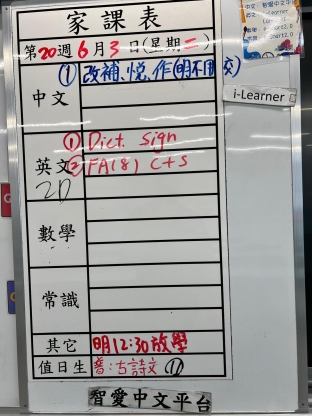 家課表
第20週6月3日(星期二)
中文
① 改補、悅、作(明不用交)
英文
① Dict. sign
② FA(8) C+S
2D
數學
常識
其它
明12:30放學
值日生
普:古詩文 ⑪
智愛中文平台
i-Learner